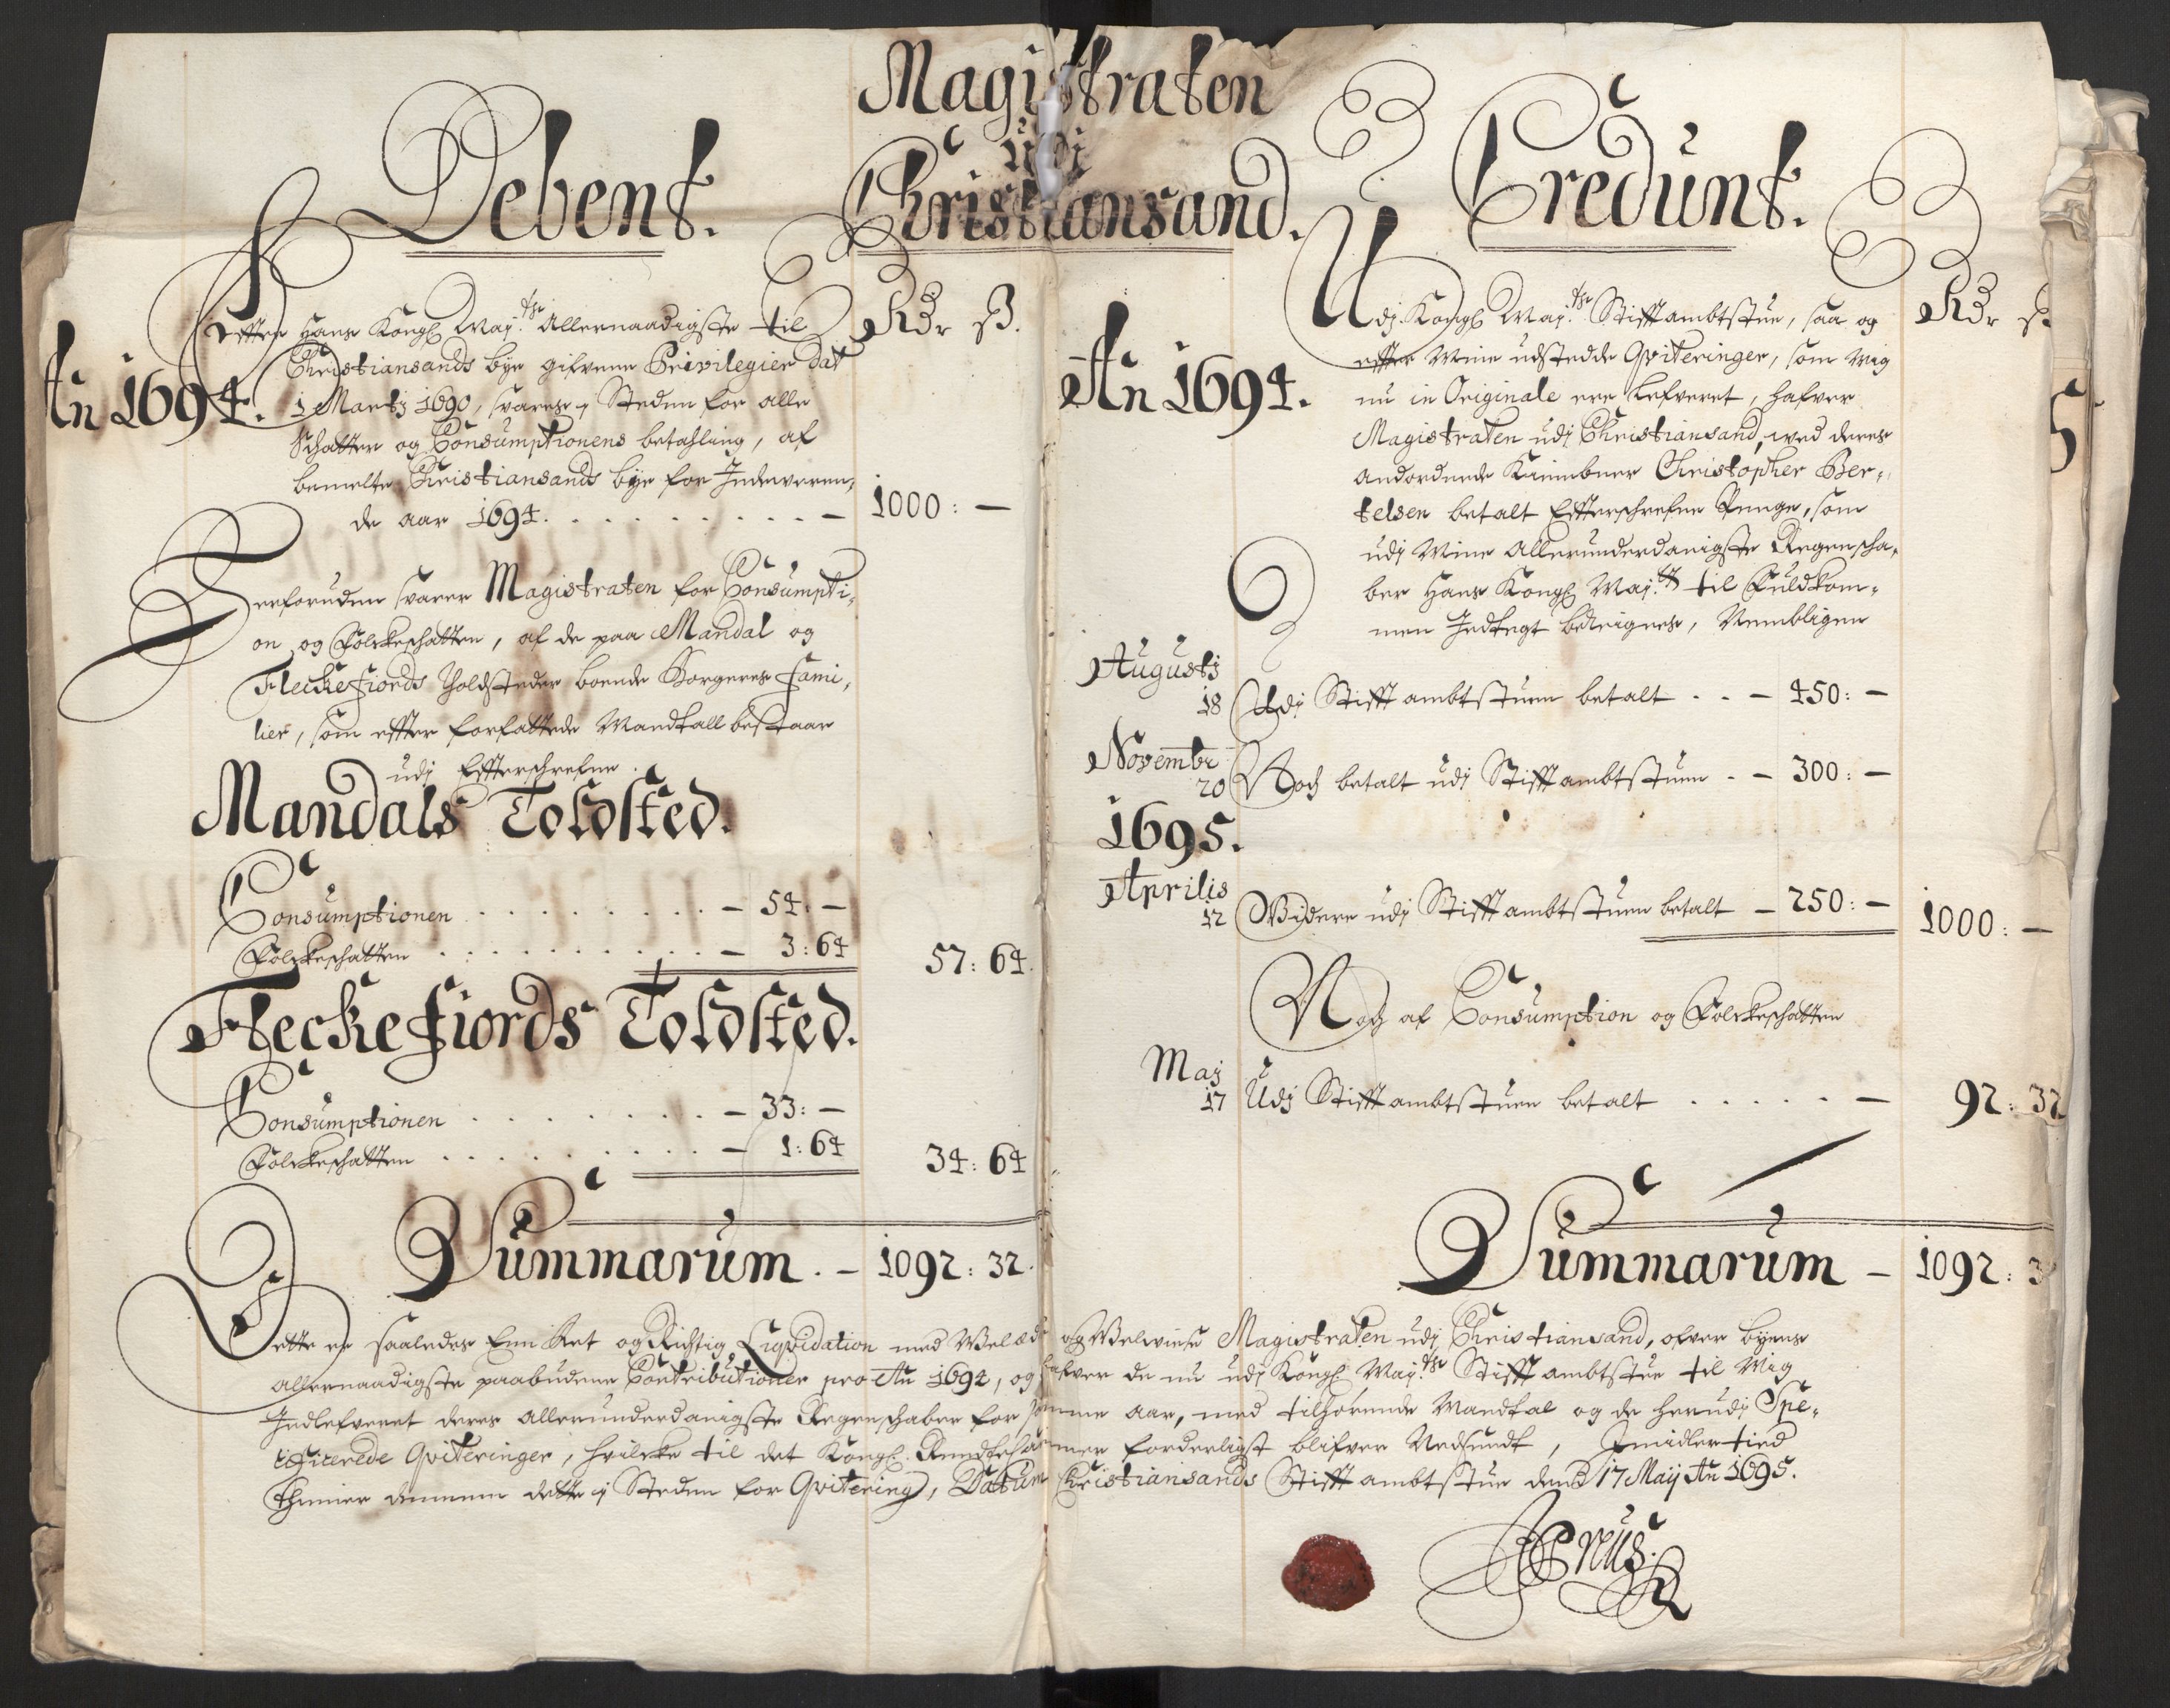 Magistraten
udj
Christiansand.
Debent.
Rdr ß.
An 1694.
Effter Hans Kongl May:tts Allernaadigste til
Christiansands bye gifvene Privilegier dat
1 Martj 1690, svares j Steden for alle
Schatter og Consumptionens betahling, af
bemelte Christiansands bye for Indeværen,
de aar 1694. - 1000: -
Derforuden svarer Magistraten for Consumpti,
on og Folckeschatten, af de paa Mandal og
Fleckefiords Tholdsteder boende Borgeres fami,
lier, som effter forfattede Mandtall bestaar
udj Effterschrefne.
Mandals Toldsted.
Consumptionen - 54: -
Folckeschatten - 3: 64
57: 64.
Fleckefiords Toldsted.
Consumptionen - 33: -
Folckeschatten - 1: 64
34: 64
Summarum. - 1092: 32.
Credunt.
Rdr ß.
An 1694.
Udj Kongl May:tts Stifftambtstue, saa og
effter Mine udstedde Qviteringer, som Mig
nu in Originale ere lefveret, hafver
Magistraten udj Christiansand, med deres
andordnede Kiembner Christopher Ber,
telsen betalt Effterschrefne Penge, som
udj Mine Allerunderdanigste Regenscha,
ber Hans Kongl May:tt til Fuldkom,
men Indtegt beregnes, Nembligen
Augustj
18 Udj Stifftambtstuen betalt - 450: -
Novembr
20 Noch betalt udj Stifftambtstuen - 300: -
1695.
Aprilis
12 Videre udj Stifftambtstuen betalt - 250: - 1000: -
Noch af Consumption og Folckeschatten
Maj
17 Udj Stifftambtstuen betalt - 92: 32
Summarum - 1092: 3
Dette er saaledes Een Ret og Rigtig Liqvidation med Velæd og Velviese Magistraten udj Christiansand, ofver byens
allernaadigste paabudene Contributioner pro An 1694, og hafver de nu udj Kongl May:tts Stifftambtstue til Mig
Indlefveret deres allerunderdanigste Regenschaber for samme aar, med tilhørende Mandtal og de herudj Spe,
cificerede Qviteringer, hvilcke til det Kongl. Rendtekammer forderligst blifver Nedsendt, Imidlertid
thiener dennem dette j Steden for Qvitering, Datum Christiansands Stifftambtstue den 17 Maij An 1695.